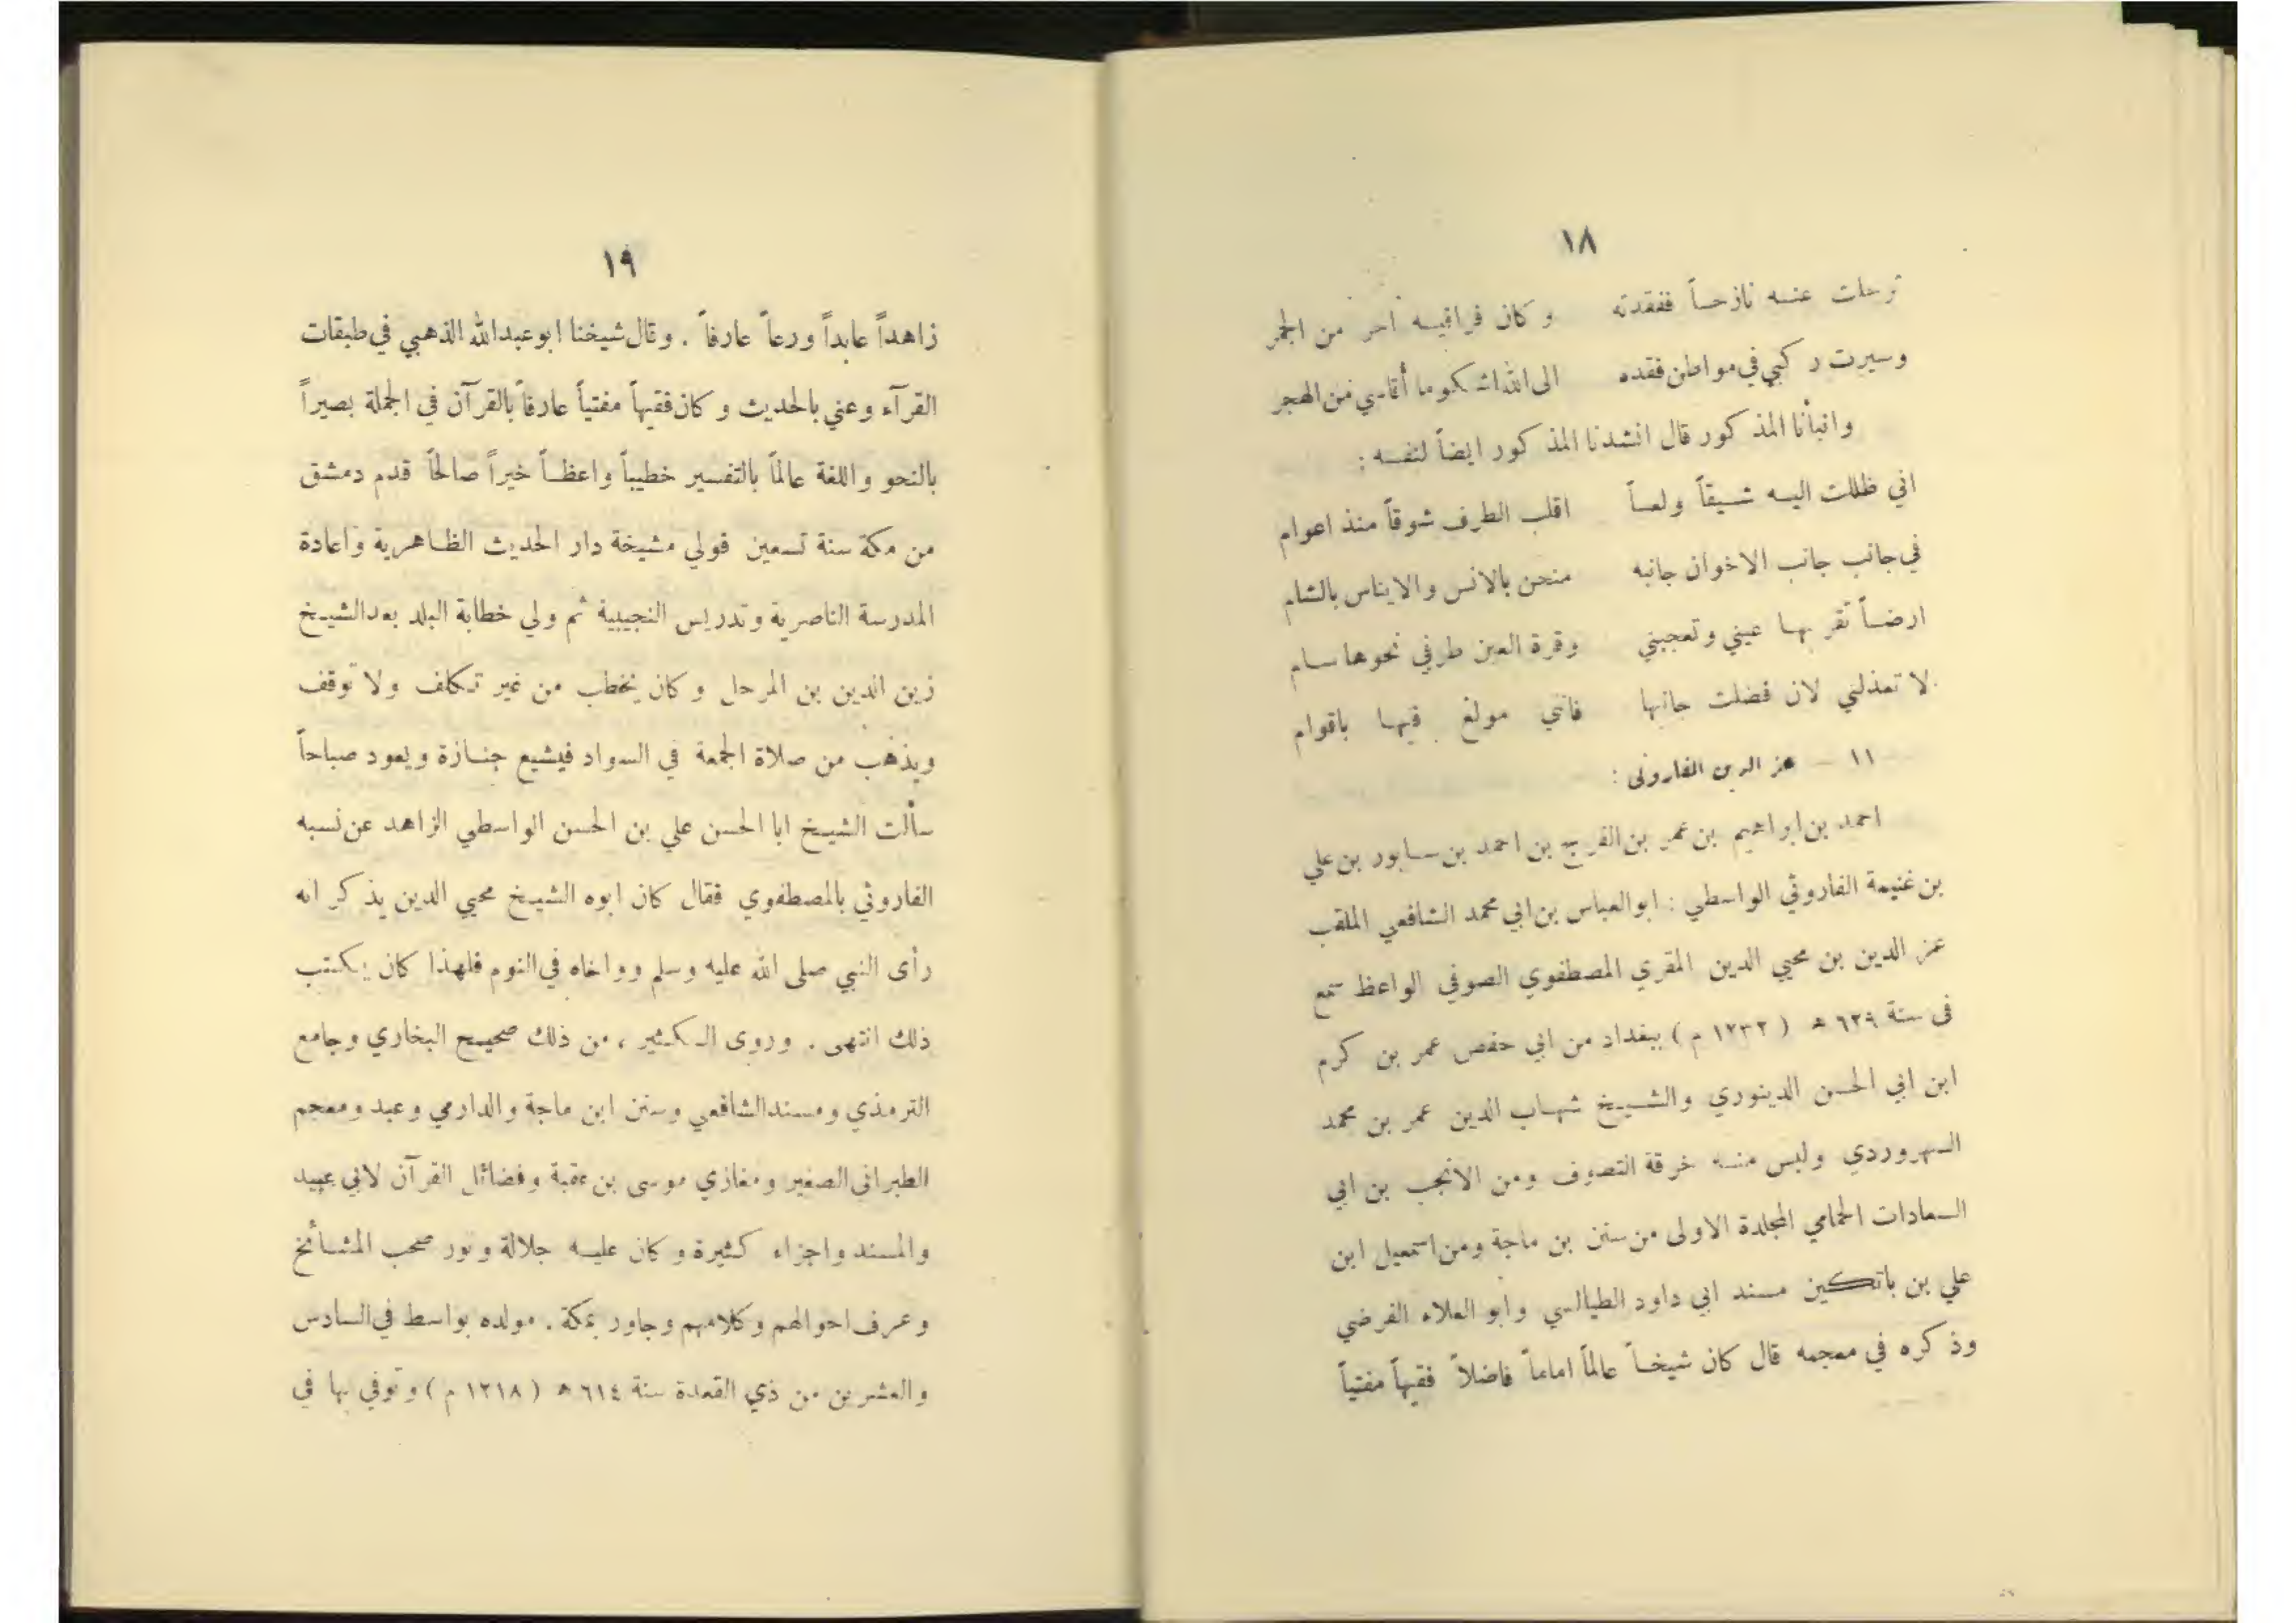 ١٨
ترحلت عنه نازحاً ففقدته وكان فراقيه أحر من الجمر
وسيرت ركبي في مواطن فقده الى الله اشكو ما أقاسي من الهجر
وانبأنا المذكور قال انشدنا المذكور ايضاً لنفسه :
اني ظللت اليه شيقاً ولعاً اقلب الطرف شوقاً منذ اعوام
في جانب جانب الاخوان جانبه منحن بالانس والايناس بالشام
ارضاً تقر بها عيني وتعجبني وقرة العين طرفي نحوها سام
لا تعذلني لان فضلت جانبها فانني مولع فيها باقوام
١١ — عز الدين الفاروثي :
احمد بن ابراهيم بن عمر بن الفرج بن احمد بن سابور بن علي
بن غنيمة الفاروثي الواسطي : ابو العباس بن ابي محمد الشافعي الملقب
عز الدين بن محيي الدين المقري المصطفوي الصوفي الواعظ سمع
في سنة ٦٢٩ ه ( ١٢٣٢ م ) ببغداد من ابي حفص عمر بن كرم
ابن ابي الحسن الدينوري والشيخ شهاب الدين عمر بن محمد
السهروردي ولبس منه خرقة التصوف ومن الانجب بن ابي
السعادات الحمامي المجلدة الاولى من سنن بن ماجة ومن اسمعيل ابن
علي بن باتكين مسند ابي داود الطيالسي وابو العلاء الفرضي
وذكره في معجمه قال كان شيخاً عالماً اماماً فاضلاً فقيهاً مفتياً
١٩
زاهداً عابداً ورعاً عارفاً . وقال شيخنا ابو عبد الله الذهبي في طبقات
القرآء وعني بالحديث وكان فقيهاً مفتياً عارفاً بالقرآن في الجملة بصيراً
بالنحو واللغة عالماً بالتفسير خطيباً واعظاً خيراً صالحاً قدم دمشق
من مكة سنة تسعين فولي مشيخة دار الحديث الظاهرية واعادة
المدرسة الناصرية وتدريس النجيبية ثم ولي خطابة البلد بعد الشيخ
زين الدين بن المرحل وكان يخطب من غير تكلف ولا توقف
ويذهب من صلاة الجمعة في السواد فيشيع جنازة ويعود صباحاً
سألت الشيخ ابا الحسن علي بن الحسن الواسطي الزاهد عن نسبه
الفاروثي بالمصطفوي فقال كان ابوه الشيخ محيي الدين يذكر انه
رأى النبي صلى الله عليه وسلم وواخاه في النوم فلهذا كان يكتب
ذلك انتهى . وروى الكثير ، من ذلك صحيح البخاري وجامع
الترمذي ومسند الشافعي وسنن ابن ماجة والدارمي وعبد ومعجم
الطبراني الصغير ومغازي موسى بن عقبة وفضائل القرآن لابي عبيد
والمسند واجزاء كثيرة وكان عليه جلالة ونور صحب المشائخ
وعرف احوالهم وكلامهم وجاور بمكة . مولده بواسط في السادس
والعشرين من ذي القعدة سنة ٦١٤ ه ( ١٢١٨ م ) وتوفي بها في